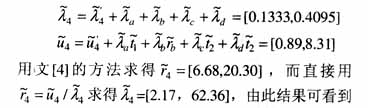 λ̃₄ = λ̃₄′ + λ̃ₐ + λ̃_b + λ̃_c + λ̃_d = [0.1333,0.4095]
ũ₄ = ũ₄′ + λ̃ₐt̃₁ + λ̃_b r̃_b + λ̃_c t̃₂ + λ̃_d t̃₂ = [0.89,8.31]
用文[4]的方法求得 r̃₄ = [6.68,20.30]，而直接用
r̃₄ = ũ₄ / λ̃₄ 求得 λ̃₄=[2.17，62.36]，由此结果可看到